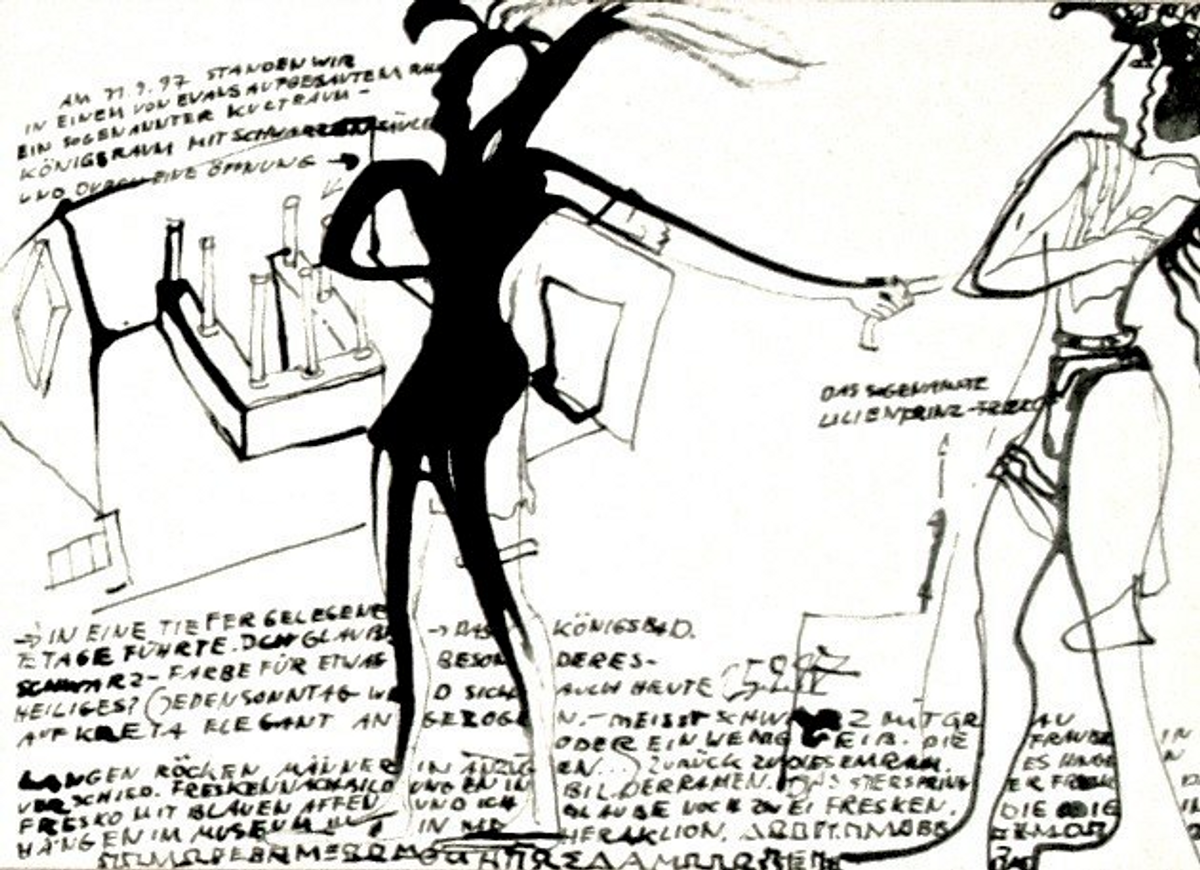 AM 21.9.97 STANDEN WIR
IN EINEM VON EVANS AUFGEBAUTEN
EIN SOGENANNTER KULTRAUM –
KÖNIGSRAUM MIT SCHWARZEN SÄULEN
UND DURCH EINE ÖFFNUNG →
DAS SOGENANNTE
LILIENPRINZ-FRESKO
→ IN EINE TIEFER GELEGENE → DAS KÖNIGSBAD.
ETAGE FÜHRTE. ICH GLAUBE BESONDERES-
SCHWARZ- FARBE FÜR ETWAS
HEILIGES? (JEDEN SONNTAG WIRD SICH AUCH HEUTE
AUF KRETA ELEGANT ANGEZOGEN.- MEIST SCHWARZ MIT GRAU
ODER EIN WENIG WEIß. DIE FRAUEN IN
LANGEN RÖCKEN MÄNNER IN ANZÜGEN...) ZURÜCK ZU DIESEM RAUM. ES HINGEN IN
VERSCHIED. FRESKENNACHBILDUNGEN IN BILDERRAMEN. DAS STIERSPRINGER FRESKO
FRESKO MIT BLAUEN AFFEN UND ICH GLAUBE NOCH ZWEI FRESKEN. DIE
HÄNGEN IM MUSEUM IN HERAKLION.